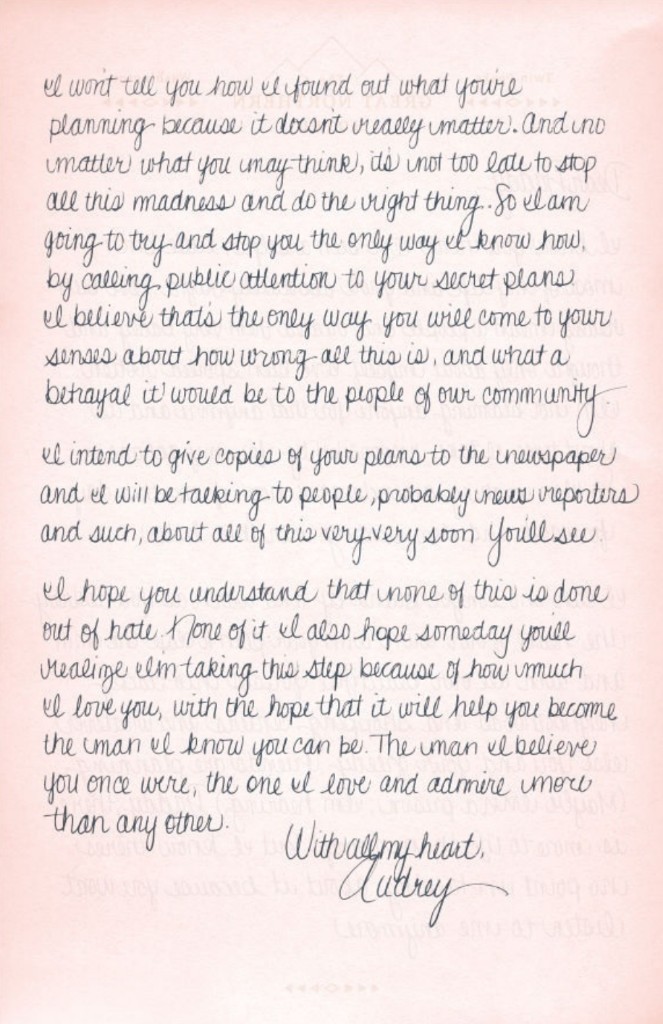 I won't tell you how I found out what you're
planning because it doesn't really matter. And no
matter what you may think, it's not too late to stop
all this madness and do the right thing. So I am
going to try and stop you the only way I know how,
by calling public attention to your secret plans
I believe that's the only way you will come to your
senses about how wrong all this is, and what a
betrayal it would be to the people of our community.
I intend to give copies of your plans to the newspaper
and I will be talking to people, probably news reporters
and such, about all of this very very soon You'll see
I hope you understand that none of this is done
out of hate. None of it I also hope someday you'll
realize I'm taking this step because of how much
I love you, with the hope that it will help you become
the man I know you can be. The man I believe
you once were, the one I love and admire more
than any other.
With all my heart,
Audrey